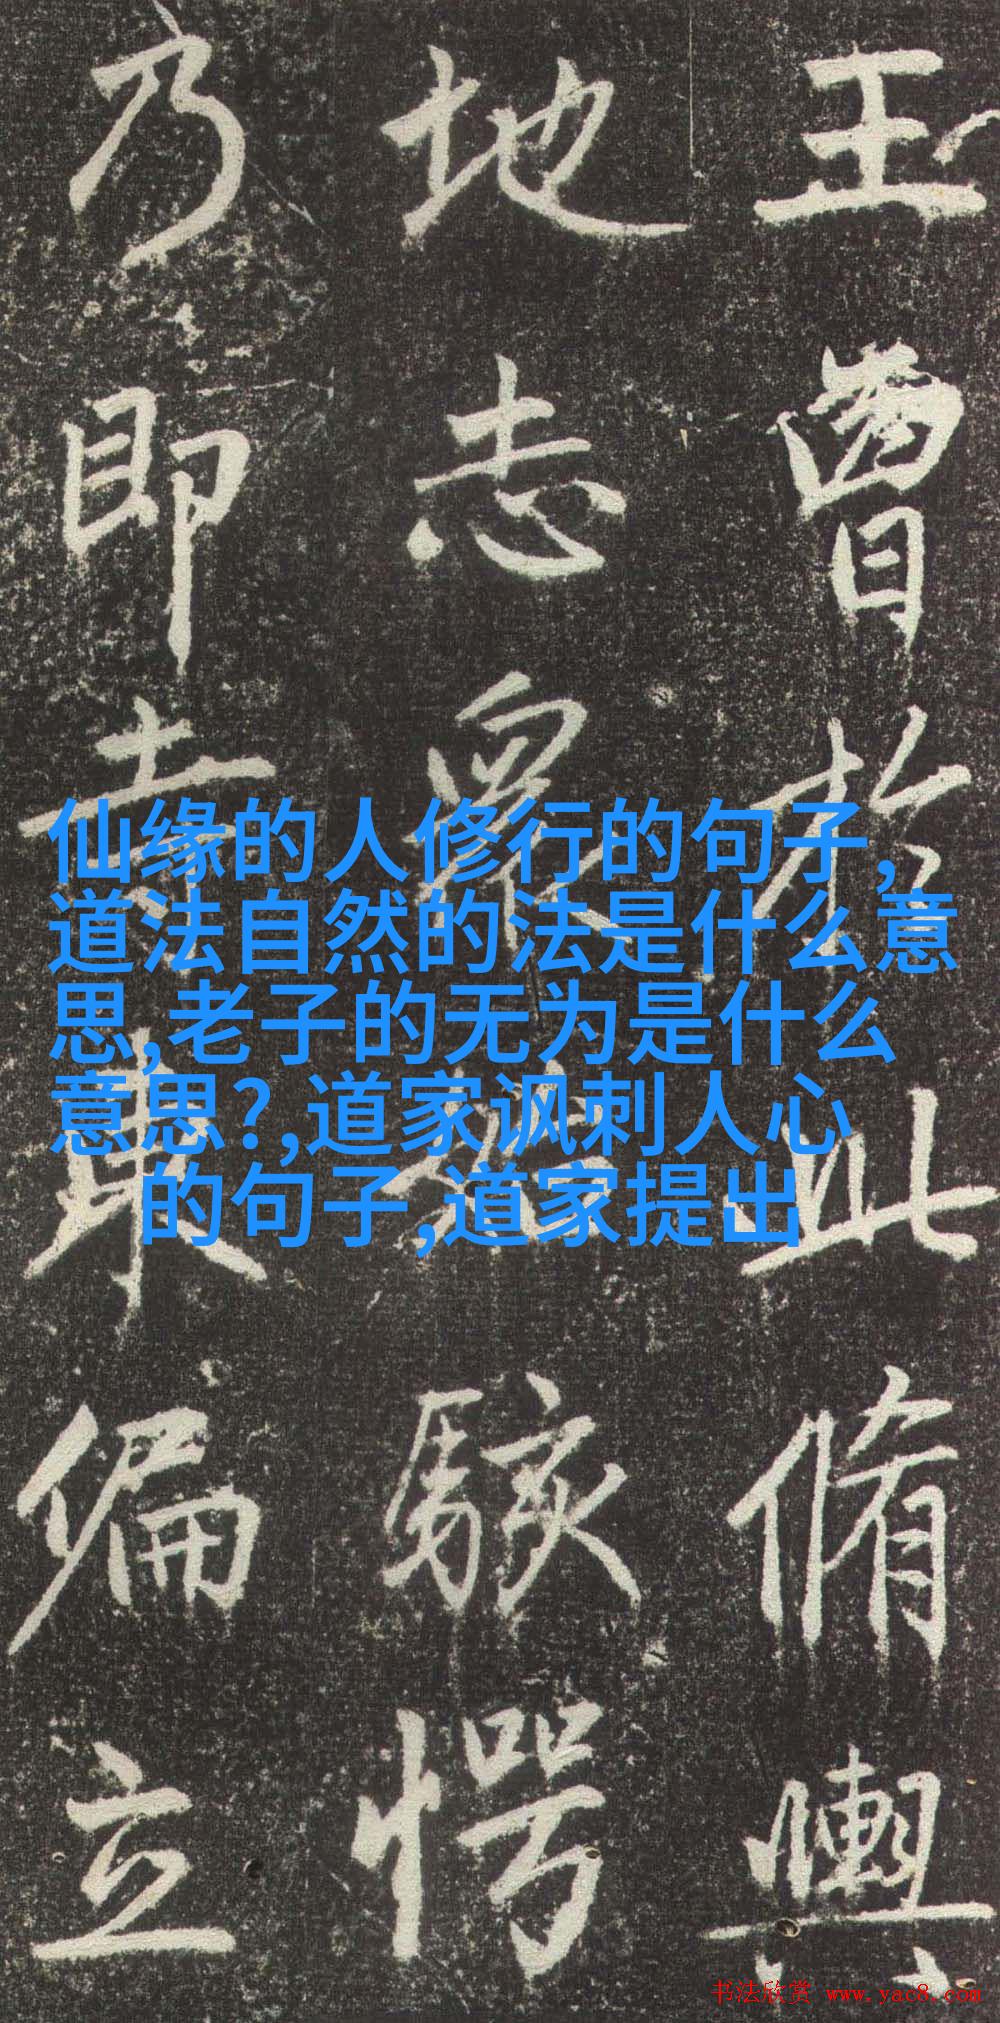 王曹於此脩輿
地志最駭愕
乃即寺東偏立
仙缘的人修行的句子,
道法自然的法是什么意
思,老子的无为是什么
意思?,道家讽刺人心
的句子,道家提出
书法欣赏 www.yac8.com